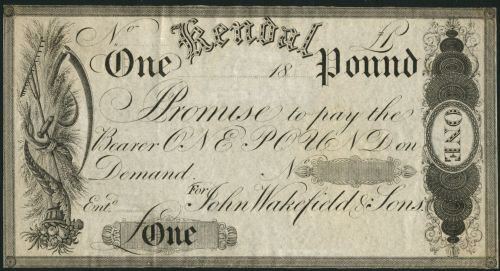 No Kendal £
One 18 Pound
I Promise to pay the
Bearer ONE POUND on
Demand. No
For John Wakefield & Sons.
Entd.
£One
ONE